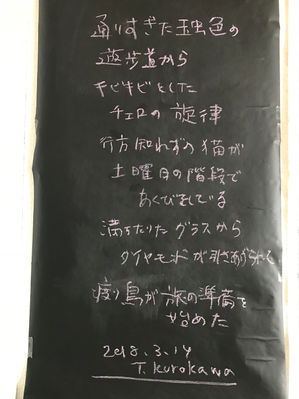 通りすぎた玉虫色の
遊歩道から
キビキビとした
チェロの旋律
行方知れずの猫が
土曜日の階段で
あくびをしている
満ちたりたグラスから
ダイヤモンドが引きあげられて
渡り鳥が旅の準備を
始めた
2018.3.14
T.Kurokawa